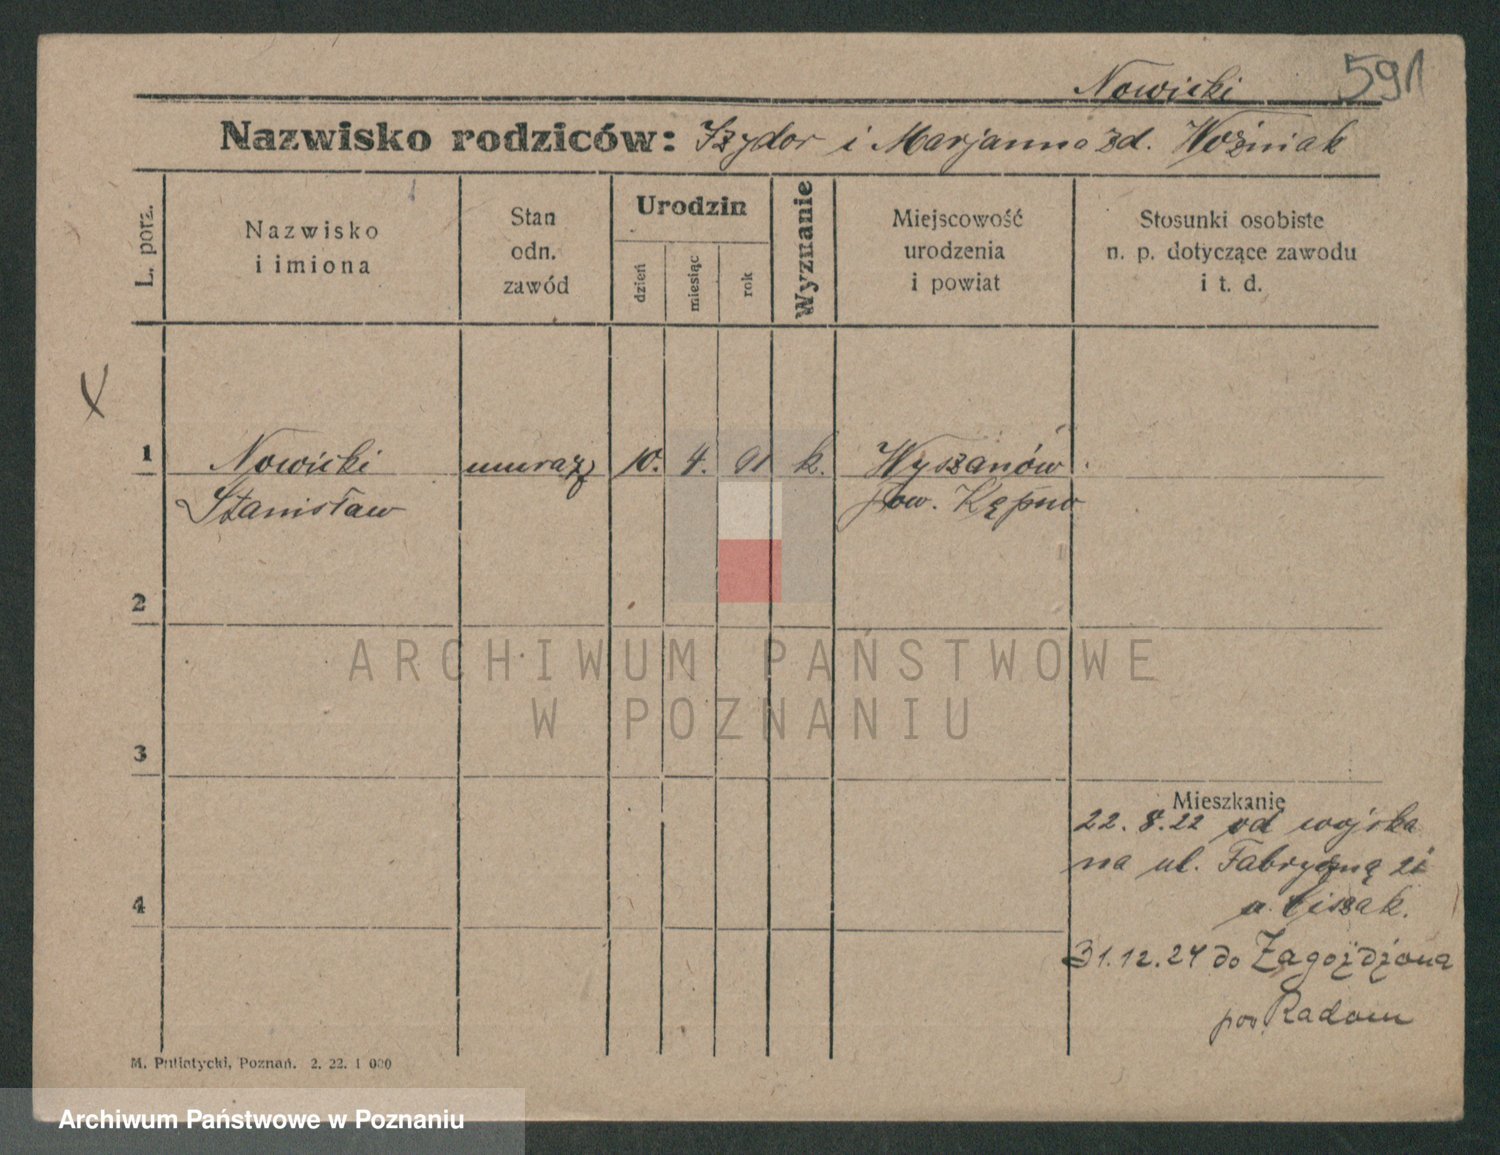 Nowicki 591
Nazwisko rodziców: Izydor i Marjanna zd. Woźniak
L. porz.
Nazwisko
i imiona
Stan
odn.
zawód
Urodzin
dzień
miesiąc
rok
Wyznanie
Miejscowość
urodzenia
i powiat
Stosunki osobiste
n. p. dotyczące zawodu
i t. d.
1 Nowicki 10. 4. 91 k. Wyszanów
Stanisław pow. Kępno
2
3
4
ARCHIWUM PAŃSTWOWE
W POZNANIU
Mieszkanie
22. 8. 22 od wojska
na ul. Fabryczną 21
31.12.24 do
pow. Radom
M. Putiatycki, Poznań. 2. 22. 1 000
Archiwum Państwowe w Poznaniu